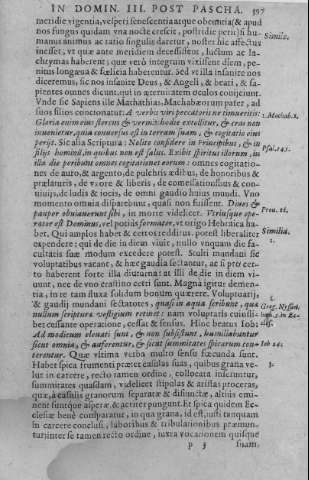 IN DOMIN. III. POST PASCHA. 597
meridie vigentia, vesperi senescentia atque obemtia(& apud
nos fungus quidam vna nocte crescit, postridie perit) si hu-
manus animus ac ratio singulis daretur, noster hic affectus
inesset, vt quæ ante meridiem decessissent, luctum ac la-
chrymas haberent: quæ verò integrum vixissent diem, pe-
nitus longæua & fœlicia haberentur. Sed vt illa insanire nos
diceremus, sic nos insanire Deus, & Angeli, & beati, & sa-
pientes omnes dicunt, qui in æternitatem oculos conijciunt.
Vnde sic Sapiens ille Mathathias Machabæorum pater, ad
suos filios concionatur: A verbis viri peccatoris ne timueritis:
Gloria enim eius stercus & vermis: hodie extollitur, & cras non
inuenietur, quia conuersus est in terram suam, & cogitatio eius
perijt. Sic alia Scriptura: Nolite confidere in Principibus, & in
filijs hominū, in quibus non est salus. Exibit spiritus illorum, in
illa die peribunt omnes cogitationes eorum: omnes cogitatio-
nes de auro, & argento, de pulchris ædibus, de honoribus &
prælaturis, de vxore & liberis, de comessationibus & con-
uiuijs, de ludis & iocis, de omni gaudio huius mundi. Vno
momento omnia disparebunt, quasi non fuissent. Diues &
pauper obuiauerunt sibi, in morte videlicet. Vtriusque ope-
rator est Dominus, vel potiùs formator, vt origo Hebraica ha-
bet. Qui amplos habet & certos redditus, potest liberaliter
expendere: qui de die in diem viuit, nullo vnquam die fa-
cultatis suæ modum excedere potest. Sculti mundani sic
voluptatibus vacant, & hæc gaudia sectantur, ac si pro cer-
to haberent forte illa diuturna: at illi de die in diem vi-
uunt, nec de vno crastino certi sunt. Magna igitur demen-
tia, in re tam fluxa solidum bonum quærere. Voluptarij,
& gaudij mundani sectatores, quasi in aqua scribunt, quæ
nullum scripturæ vestigium retinet: nam voluptatis cuius-
libet cessante operatione, cessat & sensus. Hinc beatus Iob:
Ad modicum eleuati sunt, & non subsistent, humiliabuntur
sicut omnia, & auferentur, & sicut summitates spicarum con-
terentur. Quæ vltima verba multo sensu fœcunda sunt.
Habet spica frumenti præter casulas suas, quibus grana ve-
lut in carcere, recto tamen ordine, collocata inseruntur,
summitates quasdam, videlicet stipulas & aristas proceras,
quæ, à casulis granorum separatæ & disiunctæ, altiùs emi-
nent suntque asperæ, & acriter pungunt. Et spica quidem Ec-
clesiæ benè comparatur, in qua grana, id est, iusti tanquam
in carcere conclusi, laboribus & tribulationibus præmun-
tur, inter se tamen recto ordine, iuxta vocationem quisque
p 3 suam.
Simile.
1. Machab. 2.
Psal. 145.
Prou. 22.
Similia.
1.
2.
Greg. Nyssen.
Iob 24.
3.